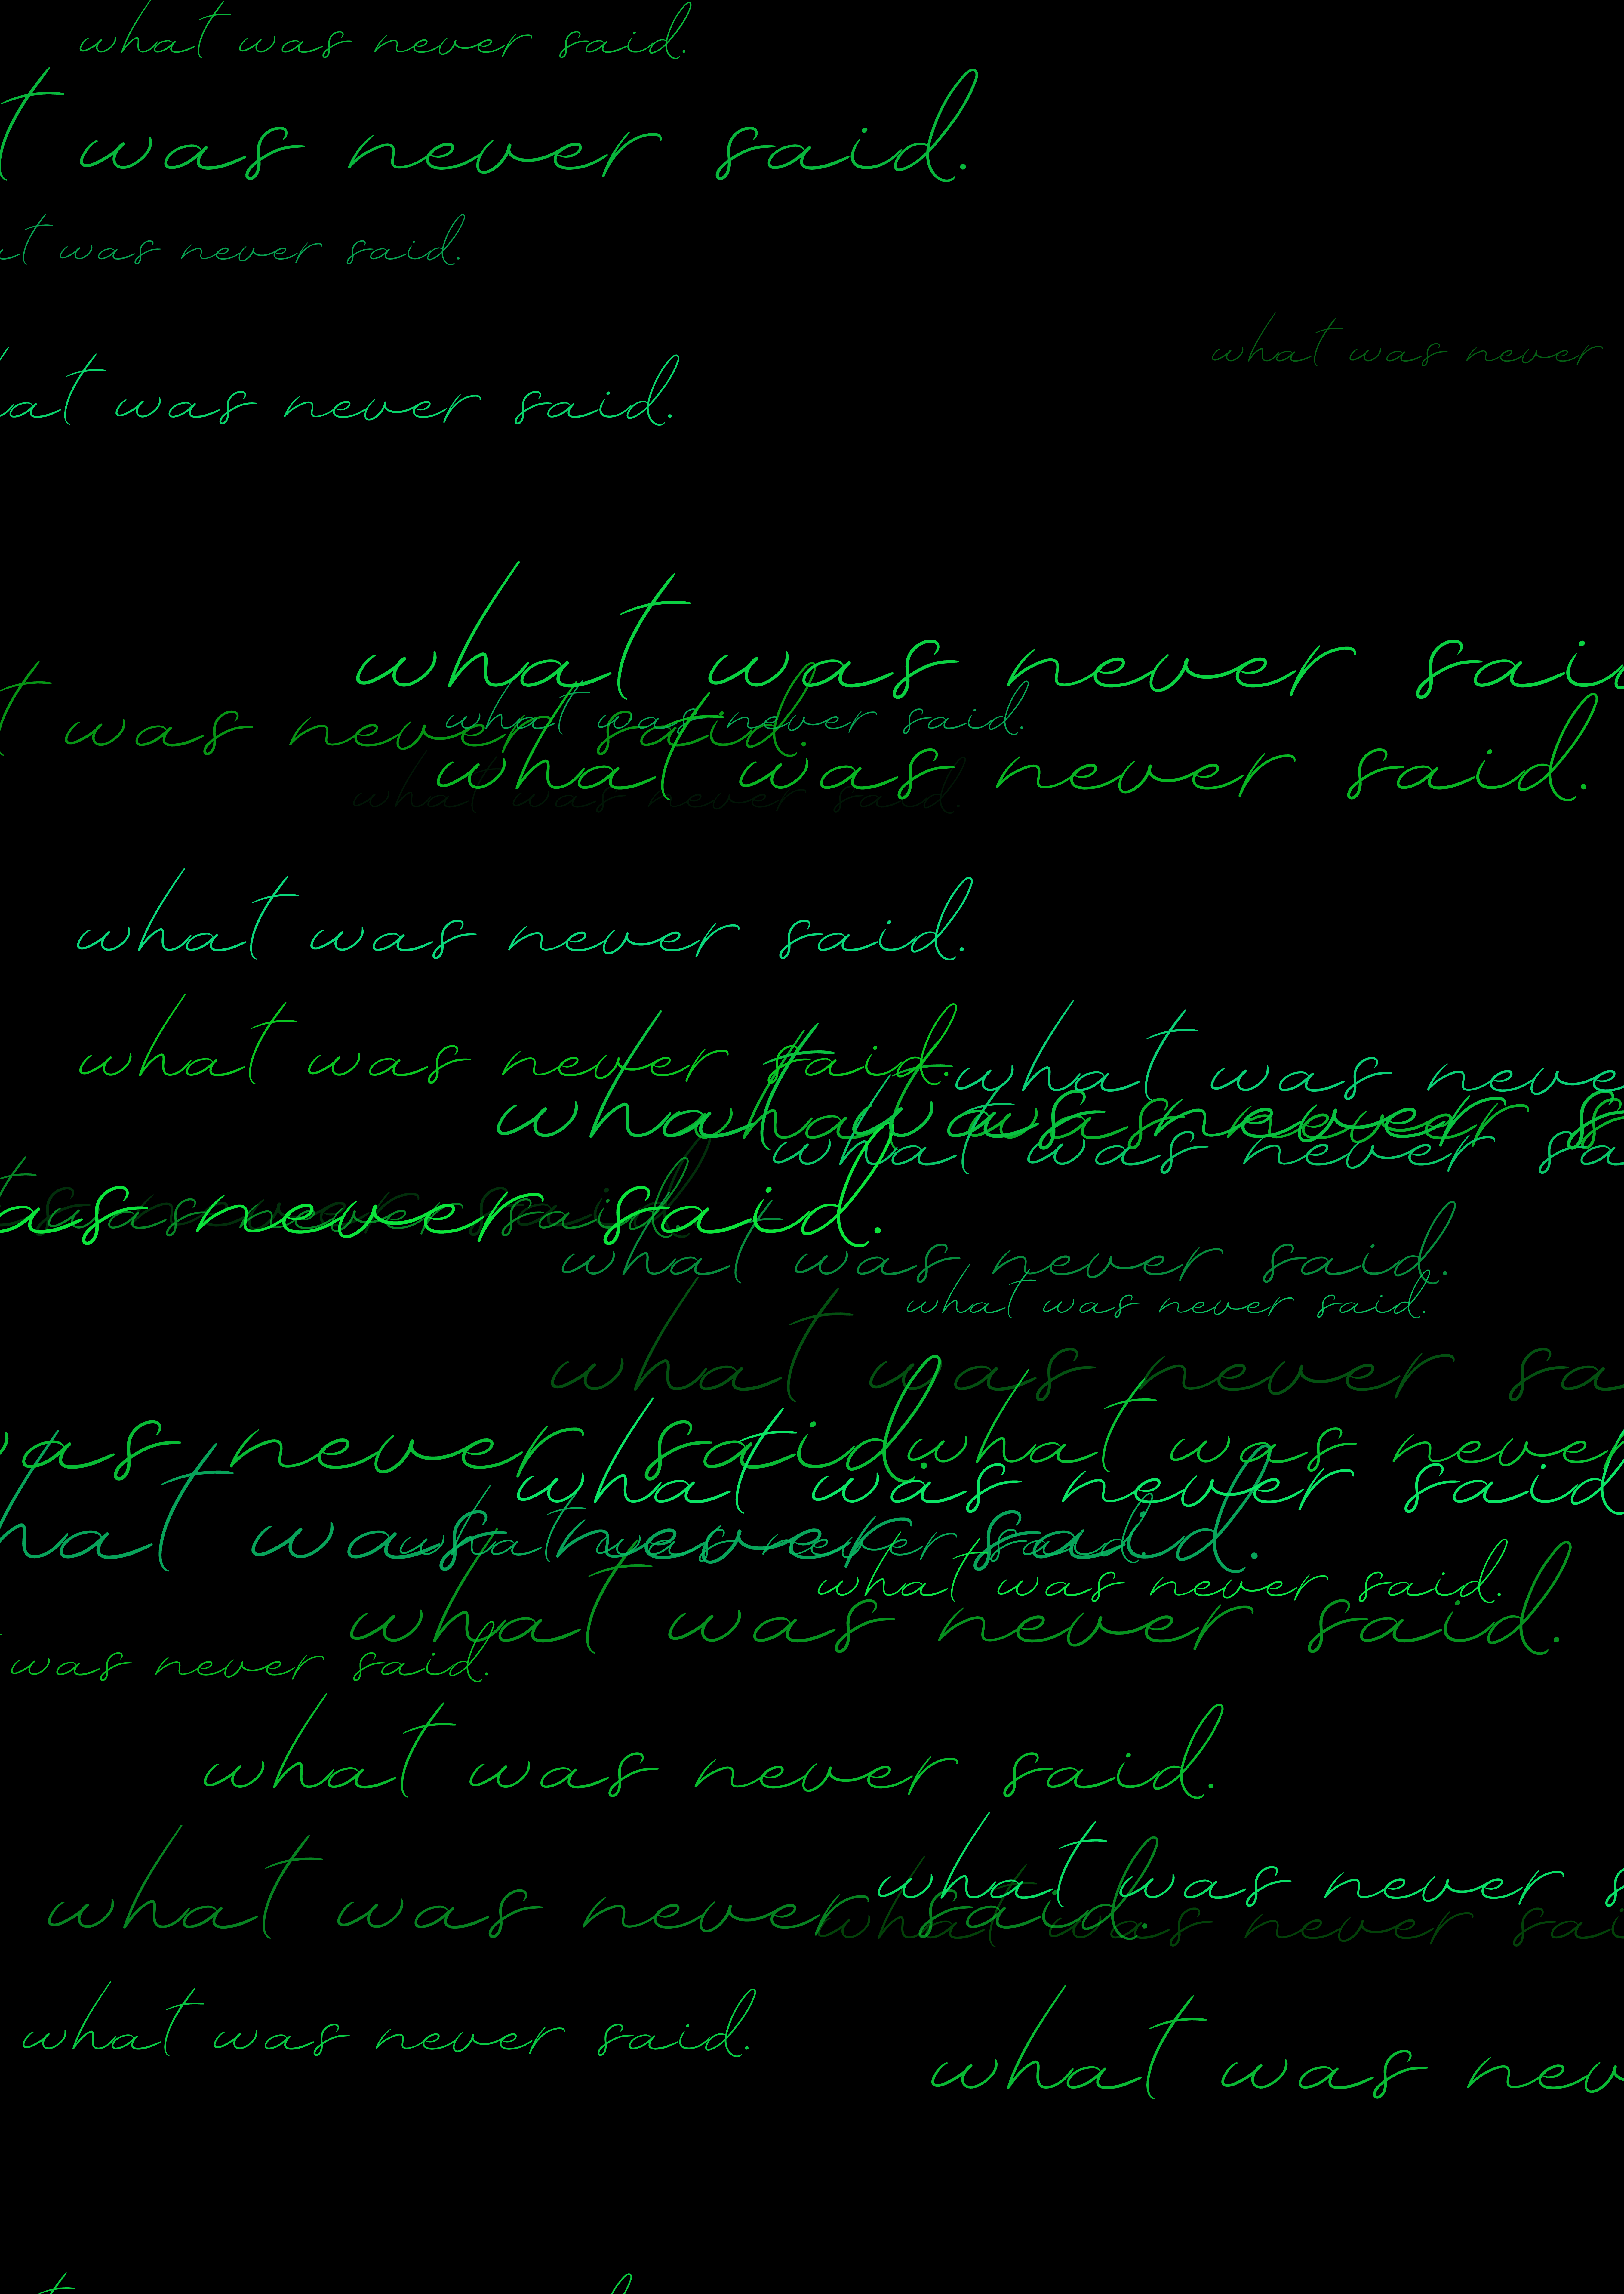 what was never said.
t was never said.
at was never said.
what was never
hat was never said.
what was never sai
t was never said.
what was never said.
what was never said.
what was never said.
what was never said.
what was never said.
what was neve
what was never s
what was never
what was never sa
as never said.
was never said.
said.
what was never said.
what was never said.
what was never sa
was never said.
what was never
what was never said
hat was never said.
what was never said.
what was never said.
what was never said.
was never said.
what was never said.
what was never s
what was never said.
what was never sai
what was never said.
what was nev